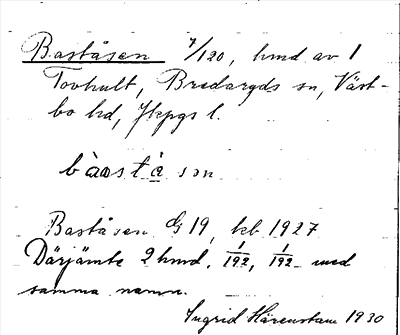 Baståsen 7/120, hmd av 1
Tovhult, Bredaryds sn, Väst-
bo hd, Jkpgs l.
bàastå sən
Baståsen G 19, kb 1927
Därjämte 2 hmd. 1/192, 1/192 med
samma namn.
Ingrid Härenstam 1930